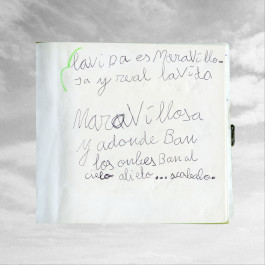 la ViDa es MeraVillo-
sa y real la Vida
MaraVillosa
y adonde Ban
los onbes Ban al
cielo abieto... acabado.